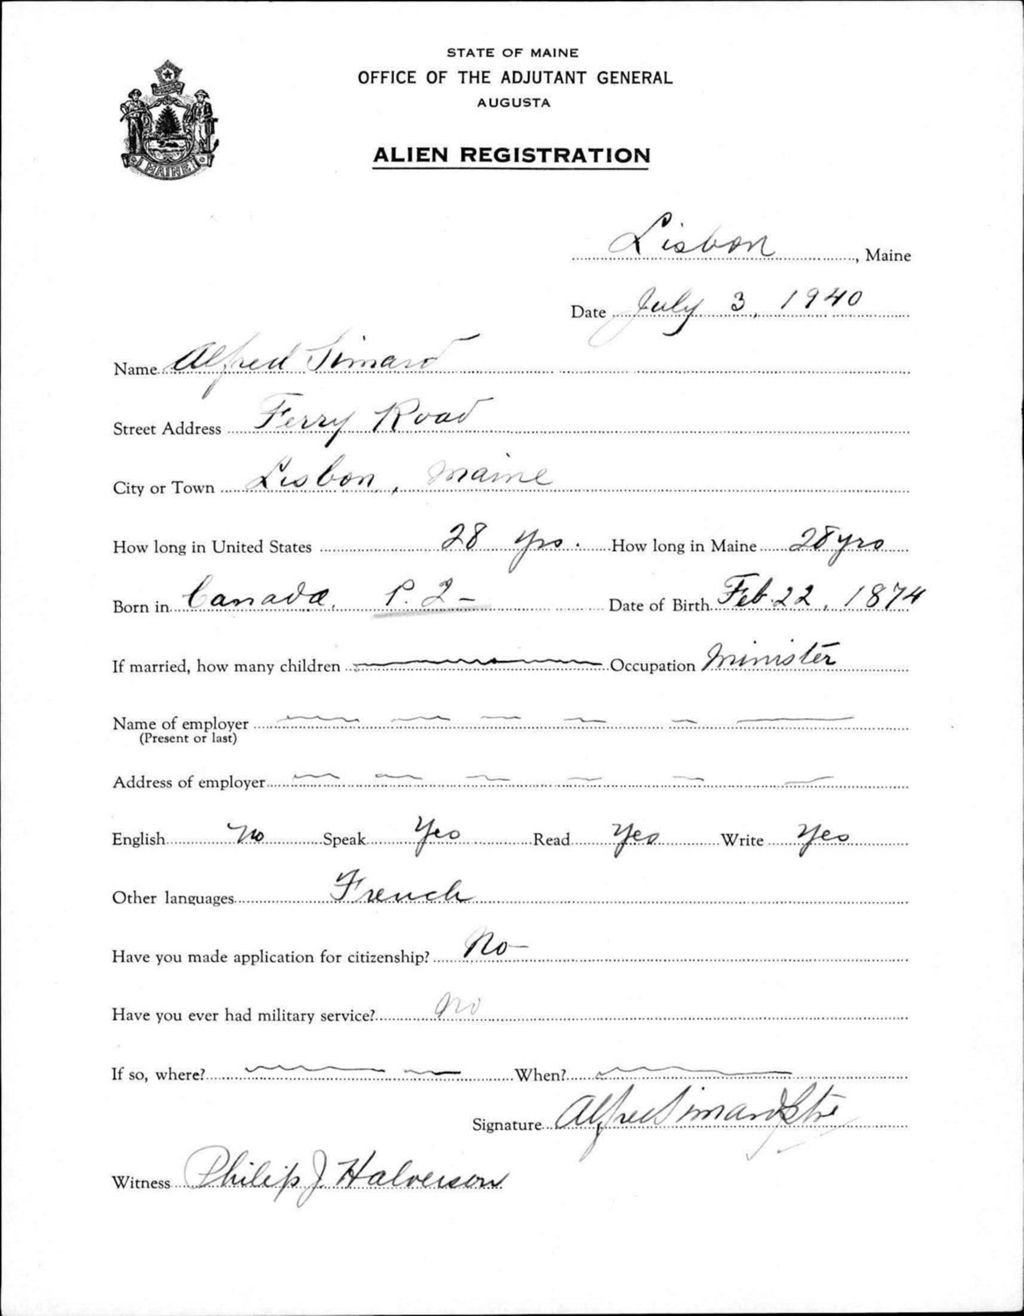 STATE OF MAINE
OFFICE OF THE ADJUTANT GENERAL
AUGUSTA
ALIEN REGISTRATION
MAINE
Lisbon, Maine
Date July 3, 1940
Name Alfred Simard
Street Address Ferry Road
City or Town Lisbon, Maine
How long in United States 28 yrs. How long in Maine 28 yrs
Born in Canada, P. 2- Date of Birth Feb. 22, 1874
If married, how many children Occupation Minister
Name of employer
(Present or last)
Address of employer
English No Speak Yes Read Yes Write Yes
Other languages French
Have you made application for citizenship? No-
Have you ever had military service? No
If so, where? When?
Signature Alfred Simard
Witness Philip J. Halverson